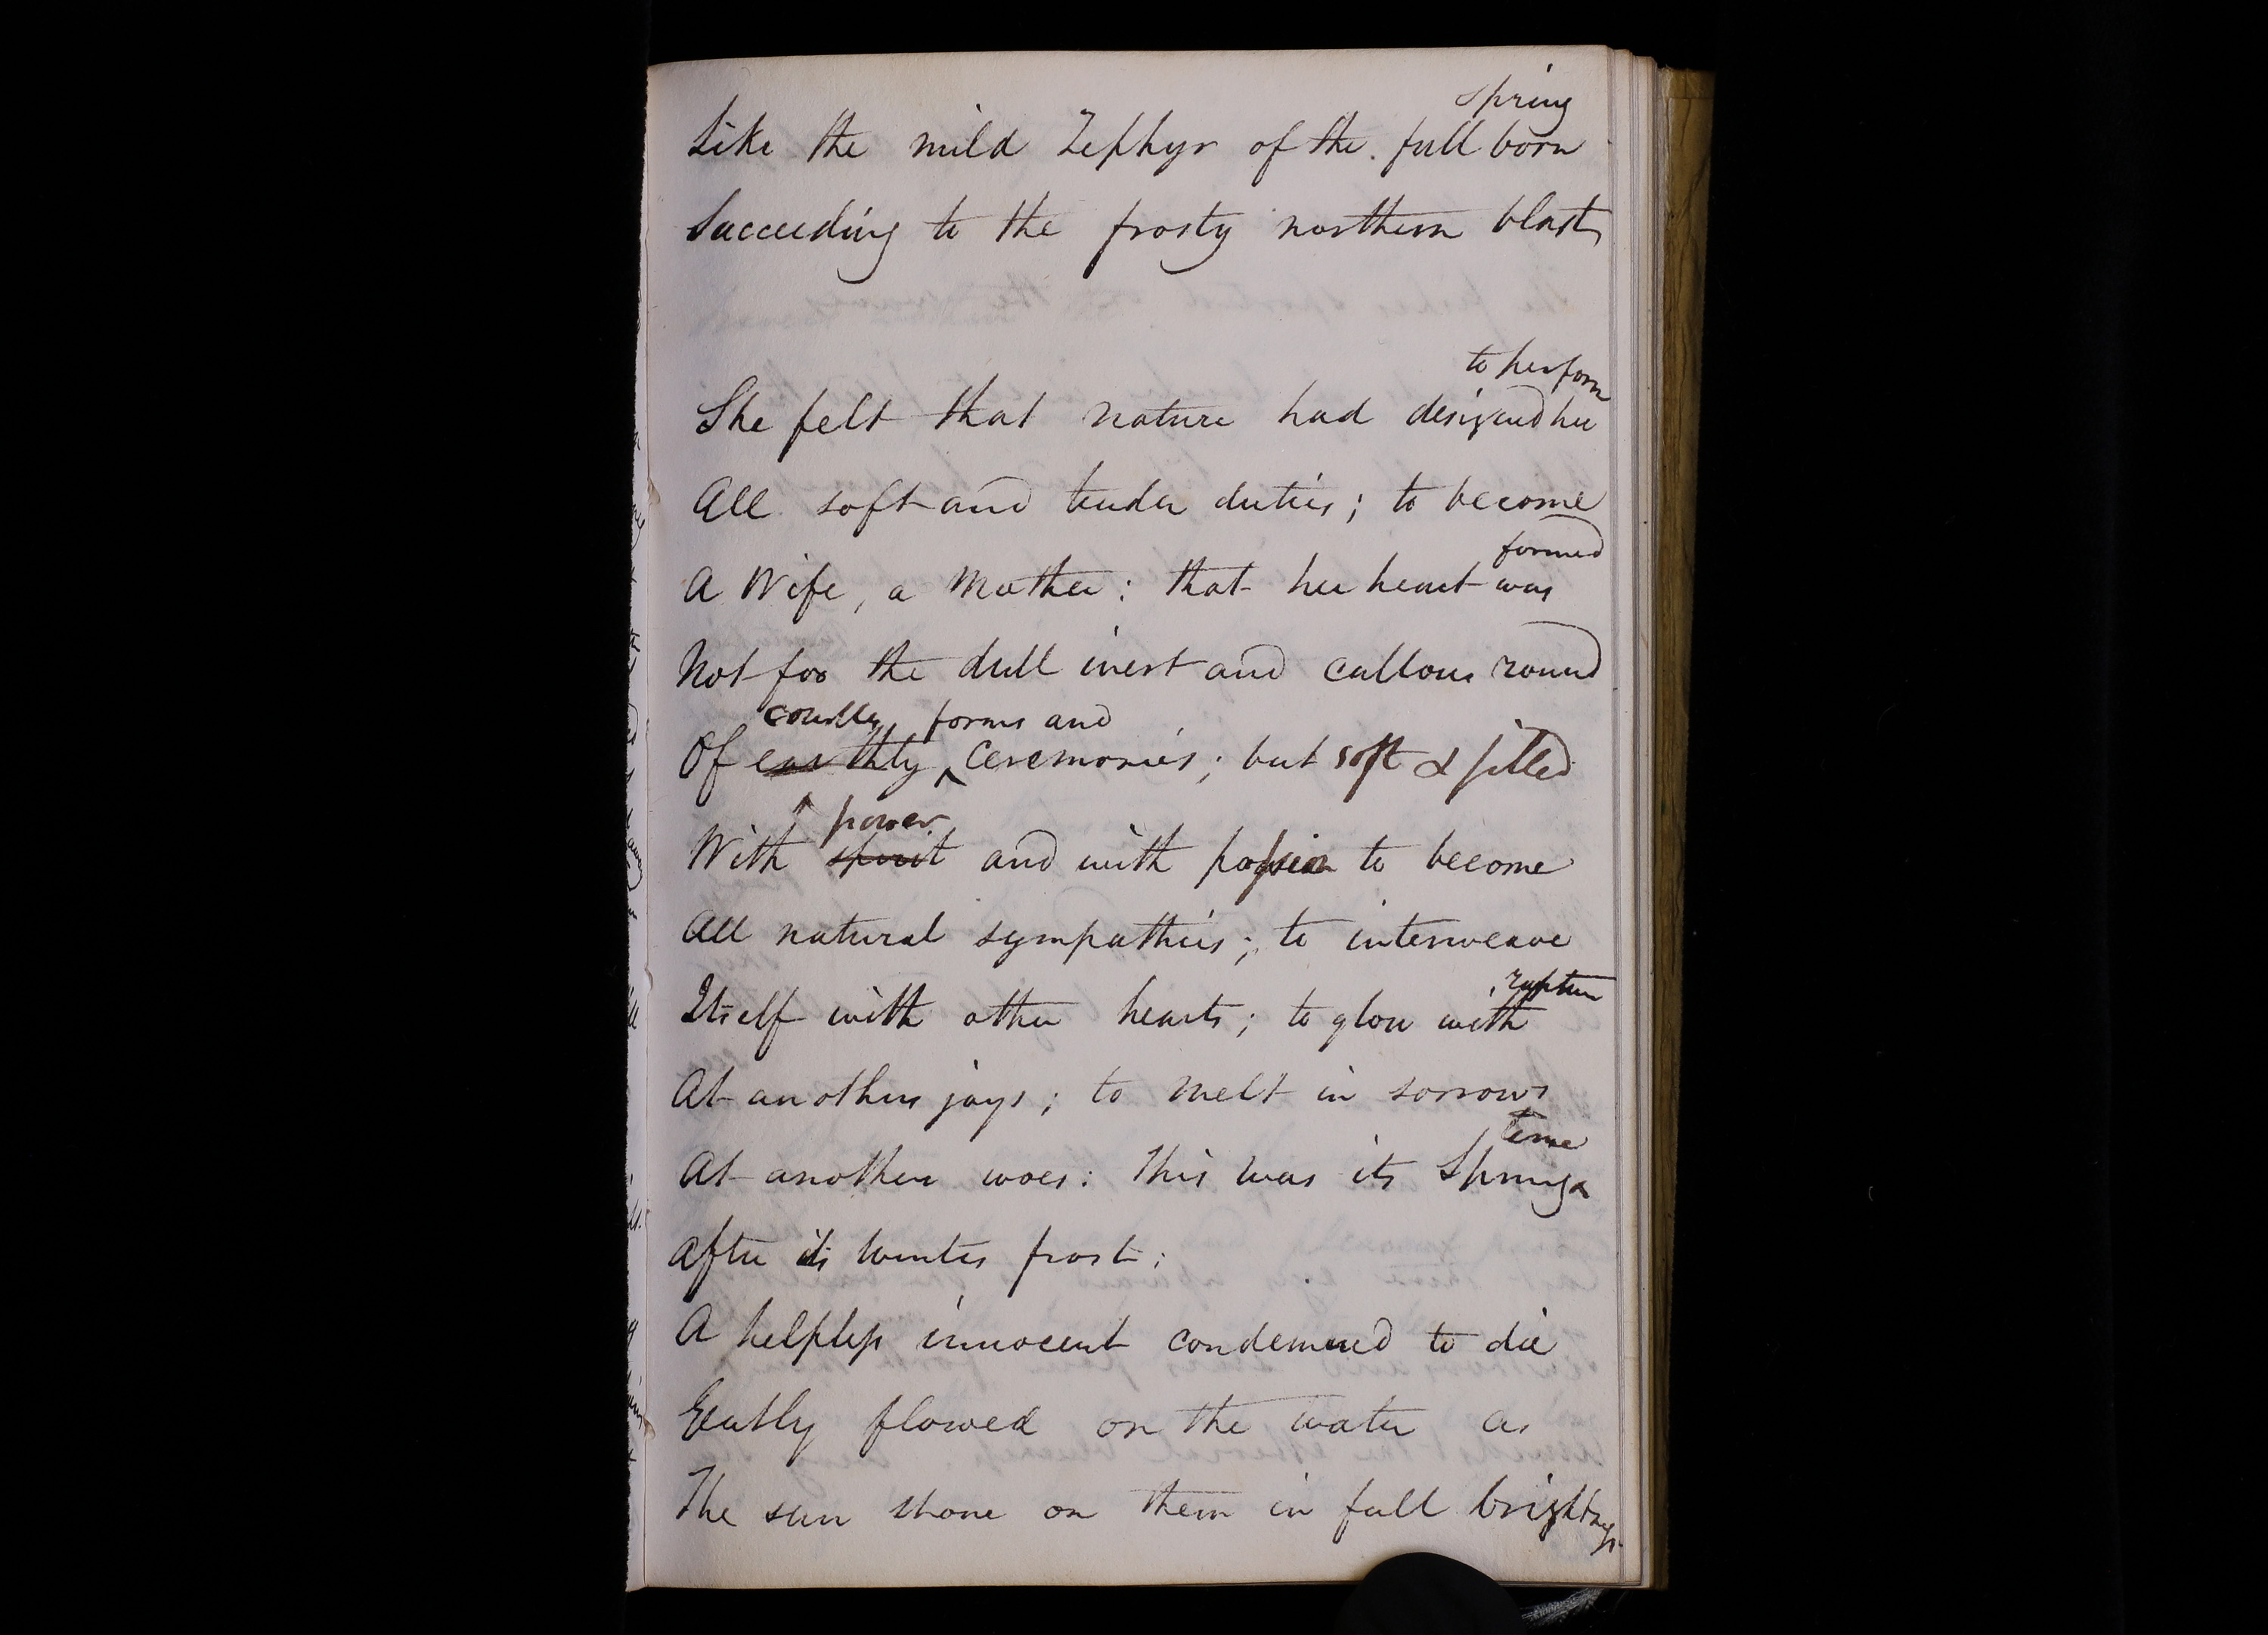 spring
Like the mild Zephyr of the full born
Succeeding to the frosty northern blast,
to perform
She felt that nature had designed her
All soft and tender duties; to become
formed
A Wife, a Mother: that her heart was
Not for the dull inert and callous round
courtly forms and
Of earthly ^ ceremonies; but soft & filled
power
With spirit and with passion to become
All natural sympathies; to interweave
rapture
Itself with other hearts; to glow with
At anothers joys; to melt in sorrows
time
At anothers woes: This was its Spring
After its winter frost:
A helpless innocent condemned to die
Gently flowed on the water as
The sun shone on them in full brightness.